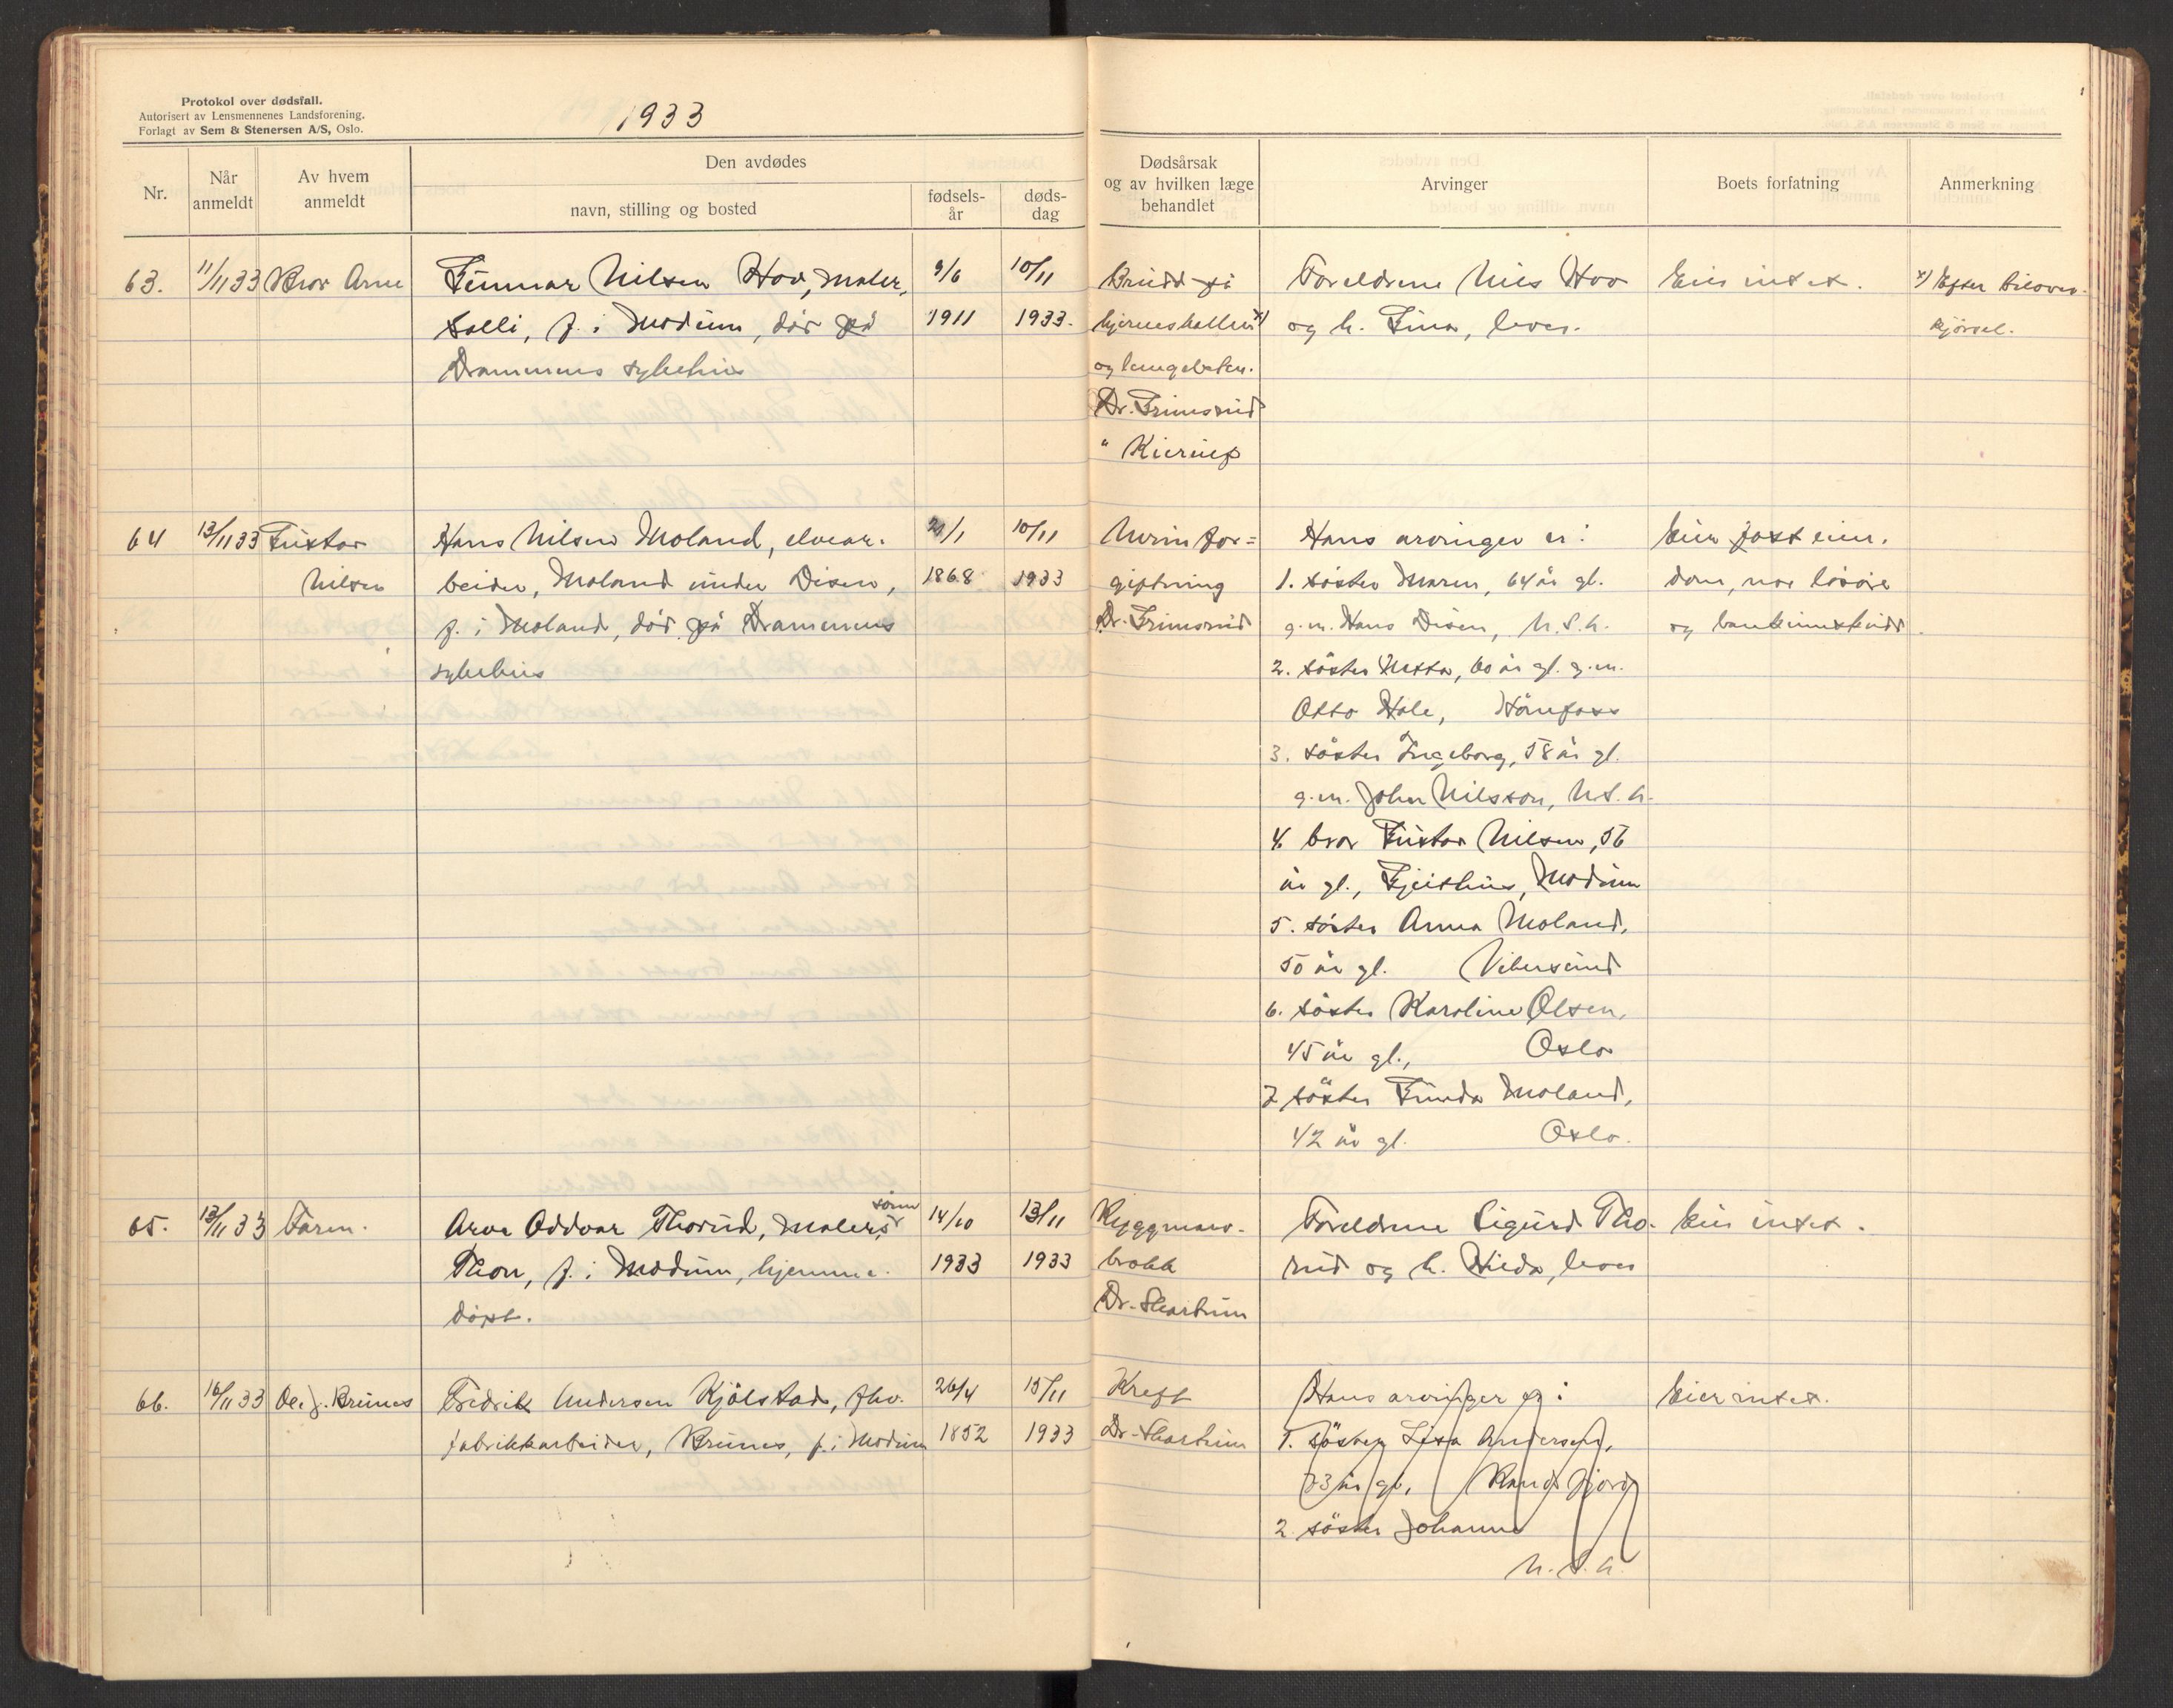 Protokol over dødsfall.
Autorisert av Lensmennenes Landsforening.
Forlagt av Sem & Stenersen A/S, Oslo.
1933
Nr.
Når anmeldt
Av hvem anmeldt
Den avdødes
navn, stilling og bosted
fødsels-år
døds-dag
Dødsårsak
og av hvilken læge
behandlet
Arvinger
Boets forfatning
Anmerkning
63. 11/11 33 Bror Arne
Gunnar Nilsen Hov, maler,
Solli, f. i Modum, död på
Drammens sykehus
9/6
1911
10/11
1933.
Brudd på
hjerneskallen x)
og lungebetен.
Dr. Grimsrud
" Kierulf
Foreldrene Nils Hov
og h. Lina, lever.
Eier intet.
x) Efter bilover-
kjörsel.
64 13/11 33 Gustav
Nilsen
Hans Nilsen Moland, elvear-
beider, Moland under Disen,
f. i Moland, död på Drammens
sykehus
21/1
1868
10/11
1933
Urinfor=
giftning
Dr. Grimsrud
Hans arvinger er:
1. söster Maren, 64 år gl.
g.m. Hans Disen, h.s.h.
2. söster Netta, 60 år gl. g.m.
Otto Hole, Hönefoss
3. söster Ingeborg, 58 år gl.
g.m. John Nilsson, h.s.h.
4. bror Gustav Nilsen, 56
år gl., Geithus, Modum
5. söster Anna Moland,
50 år gl. Vikersund
6. söster Karoline Olsen,
45 år gl., Oslo
7 söster Gunda Moland,
42 år gl. Oslo.
Eier fast eien-
dom, noe lösöre
og bankinnskudd.
65. 13/11 33 Faren.
Arve Oddvar Thorud, malers sönn
Thon, f. i Modum, hjemme-
döpt.
14/10
1933
13/11
1933
Ryggmarv-
brokk
Dr. Skartum
Foreldrene Sigurd Tho-
rud og h. Hilda, lever
Eier intet.
66. 16/11 33 Ole J. Brunes
Fredrik Andersen Kjölstad, fhv.
fabrikkarbeider, Brunes, f. i Modum
26/4
1852
15/11
1933
Kreft
Dr. Skartum
Hans arvinger er:
1. söster Lisa Andersen,
73 år gl., Randsfjord
2. söster Johanne
h.s.h.
Eier intet.